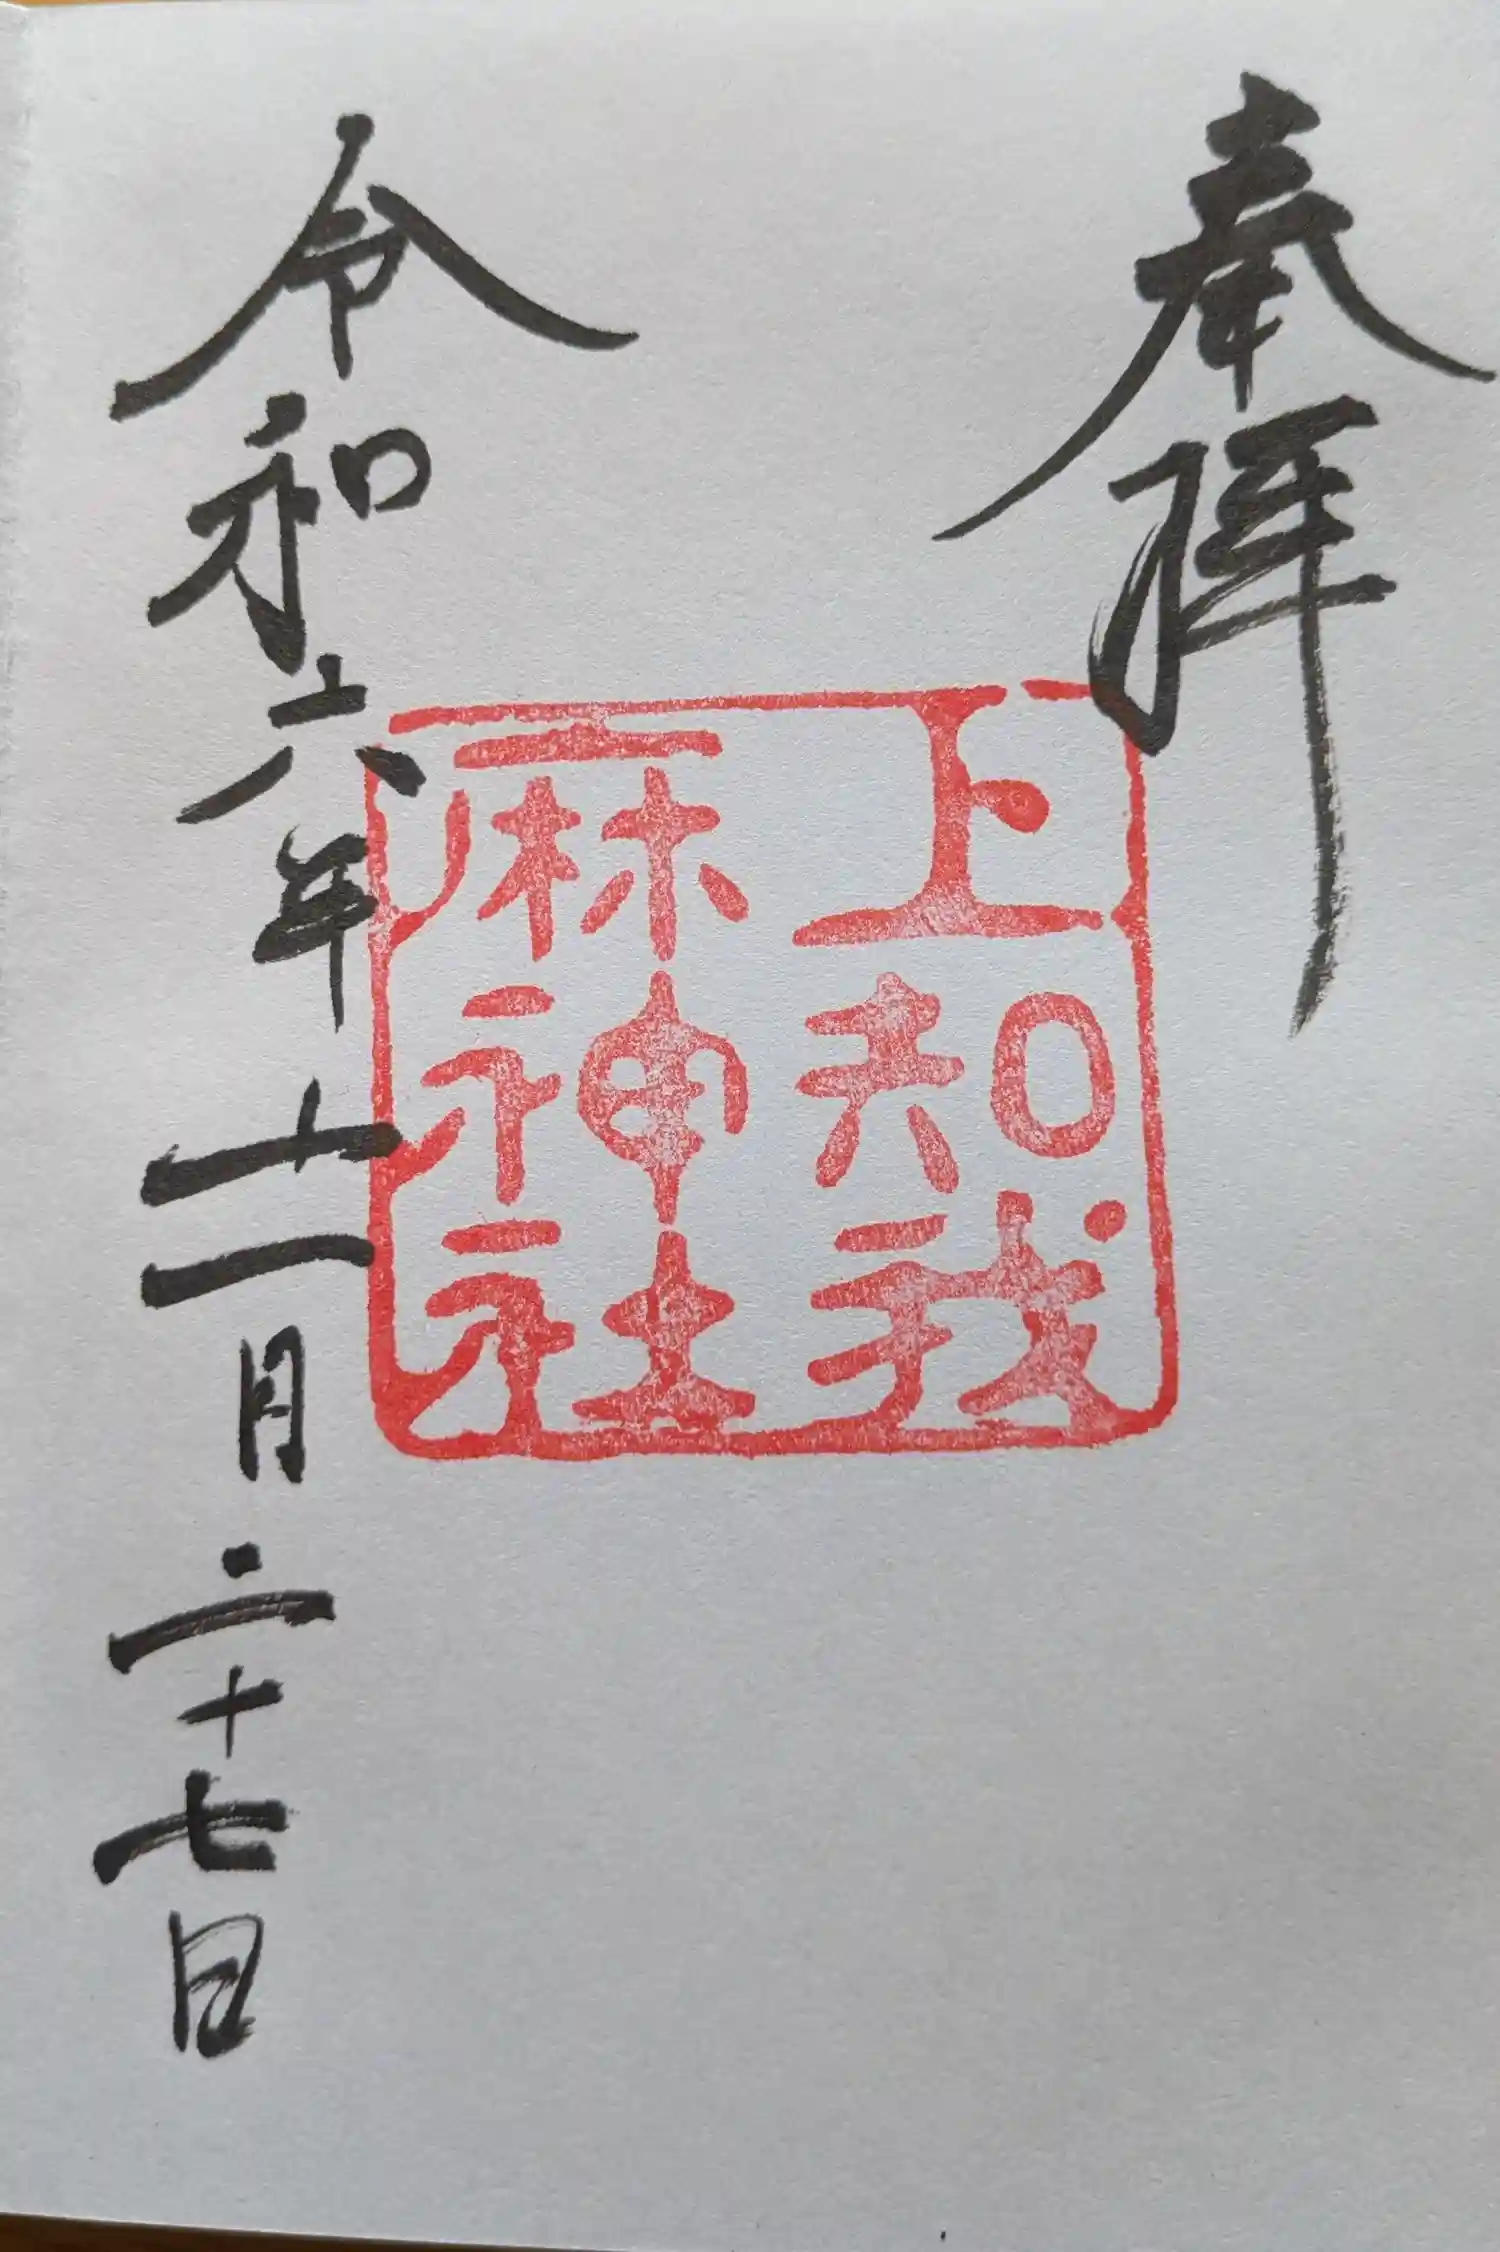 奉拝
上知我
麻神社
令和六年十一月二十七日